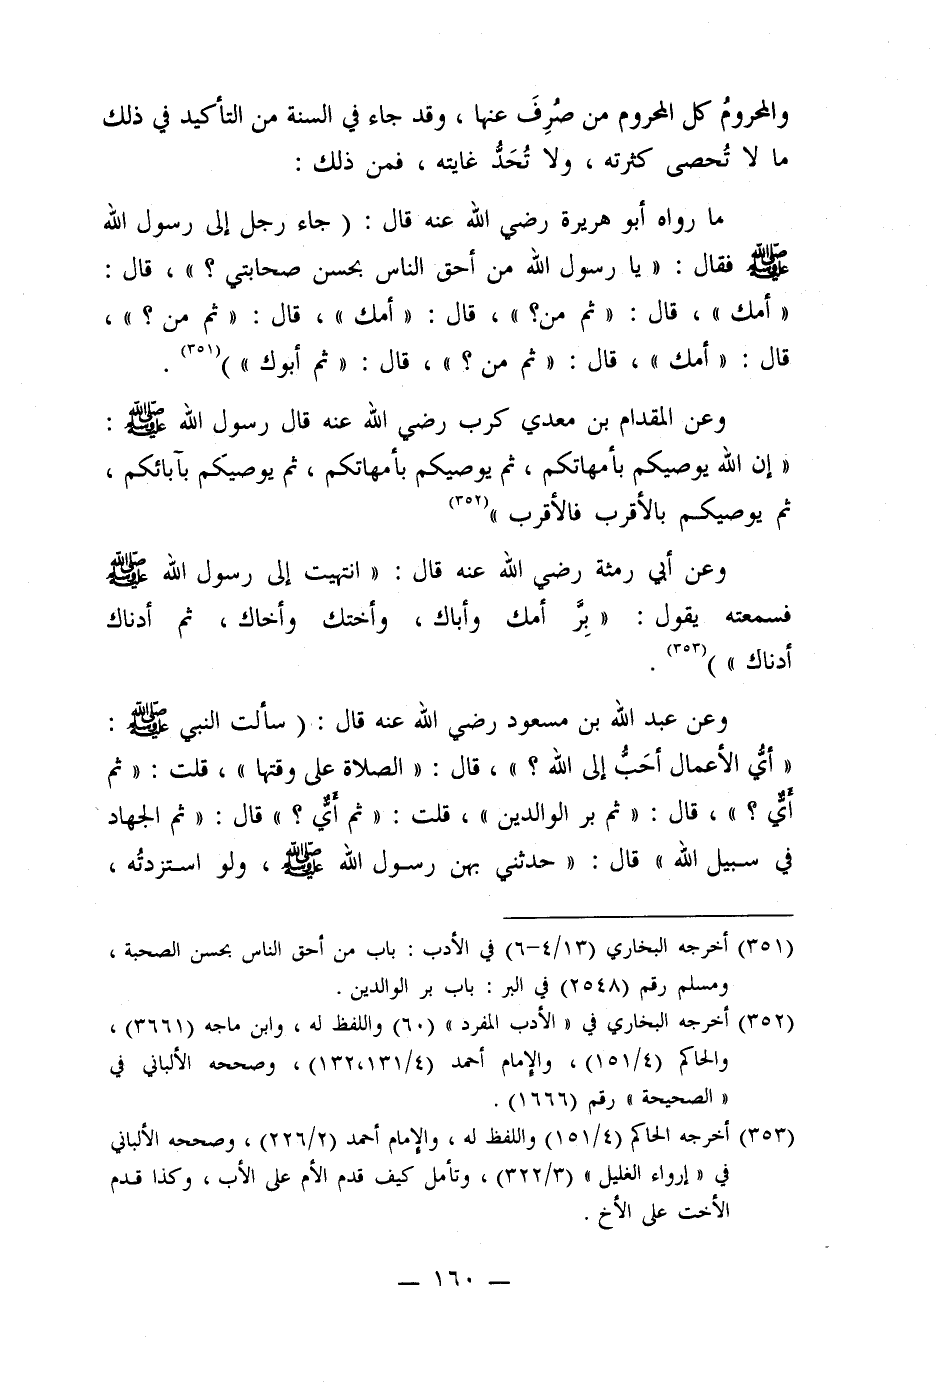 والمحرومُ كل المحروم من صُرِفَ عنها ، وقد جاء في السنة من التأكيد في ذلك
ما لا تُحصى كثرته ، ولا تُحَدُّ غايته ، فمن ذلك :
ما رواه أبو هريرة رضي الله عنه قال : ( جاء رجل إلى رسول الله
ﷺ فقال : « يا رسول الله من أحق الناس بحسن صحابتي ؟ » ، قال :
« أمك » ، قال : « ثم من؟ » ، قال : « أمك » ، قال : « ثم من ؟ » ،
قال : « أمك » ، قال : « ثم من ؟ » ، قال : « ثم أبوك » )(٣٥١) .
وعن المقدام بن معدي كرب رضي الله عنه قال رسول الله ﷺ :
« إن الله يوصيكم بأمهاتكم ، ثم يوصيكم بأمهاتكم ، ثم يوصيكم بآبائكم ،
ثم يوصيكم بالأقرب فالأقرب »(٣٥٢)
وعن أبي رمثة رضي الله عنه قال : « انتهيت إلى رسول الله ﷺ
فسمعته يقول : « بِرَّ أمك وأباك ، وأختك وأخاك ، ثم أدناك
أدناك » )(٣٥٣) .
وعن عبد الله بن مسعود رضي الله عنه قال : ( سألت النبي ﷺ :
« أيُّ الأعمال أحَبُّ إلى الله ؟ » ، قال : « الصلاة على وقتها » ، قلت : « ثم
أَيٌّ ؟ » ، قال : « ثم بر الوالدين » ، قلت : « ثم أَيٌّ ؟ » قال : « ثم الجهاد
في سبيل الله » قال : « حدثني بهن رسول الله ﷺ ، ولو استزدتُه ،
(٣٥١) أخرجه البخاري (٤/١٣–٦) في الأدب : باب من أحق الناس بحسن الصحبة ،
ومسلم رقم (٢٥٤٨) في البر : باب بر الوالدين .
(٣٥٢) أخرجه البخاري في « الأدب المفرد » (٦٠) واللفظ له ، وابن ماجه (٣٦٦١) ،
والحاكم (١٥١/٤) ، والإمام أحمد (١٣٢،١٣١/٤) ، وصححه الألباني في
« الصحيحة » رقم (١٦٦٦) .
(٣٥٣) أخرجه الحاكم (١٥١/٤) واللفظ له ، والإمام أحمد (٢٢٦/٢) ، وصححه الألباني
في « إرواء الغليل » (٣٢٢/٣) ، وتأمل كيف قدم الأم على الأب ، وكذا قدم
الأخت على الأخ .
— ١٦٠ —